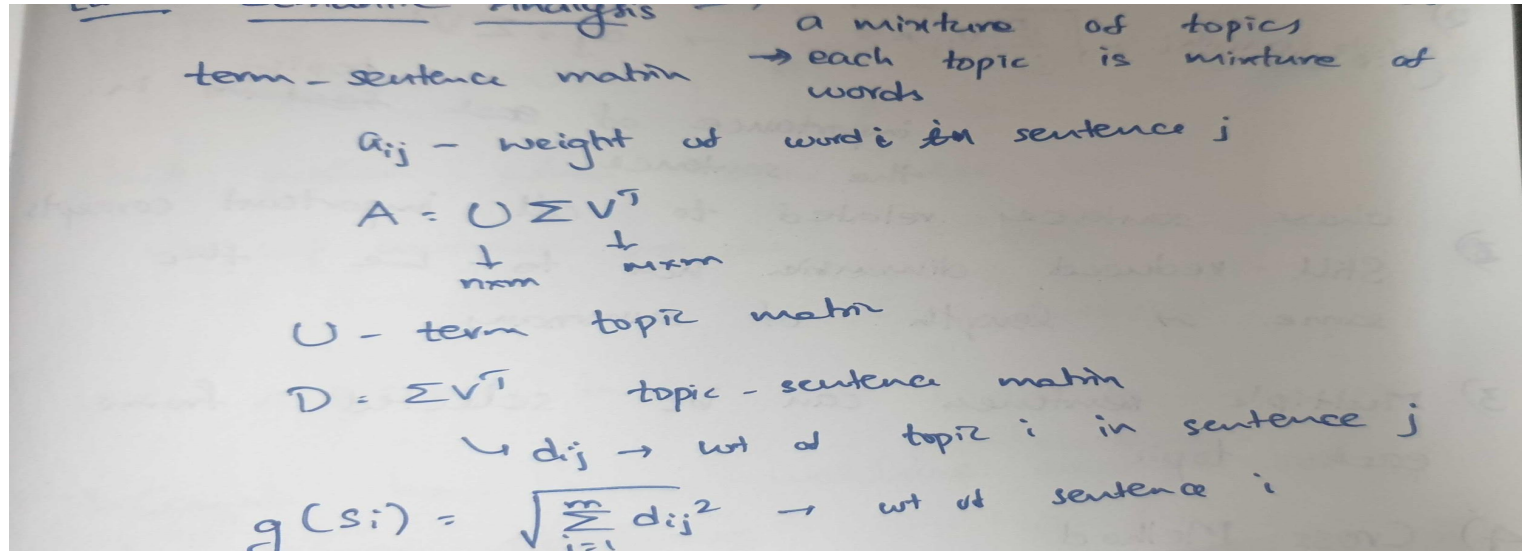 Semantic Analysis → a mixture of topics
term - sentence matrix → each topic is mixture of
words
aij - weight of word i in sentence j
A = U Σ Vᵀ
↓ ↓
n×m m×m
U - term topic matrix
D = ΣVᵀ topic - sentence matrix
↳ dij → wt of topic i in sentence j
g(si) = √(Σᵐ dij²) → wt of sentence i